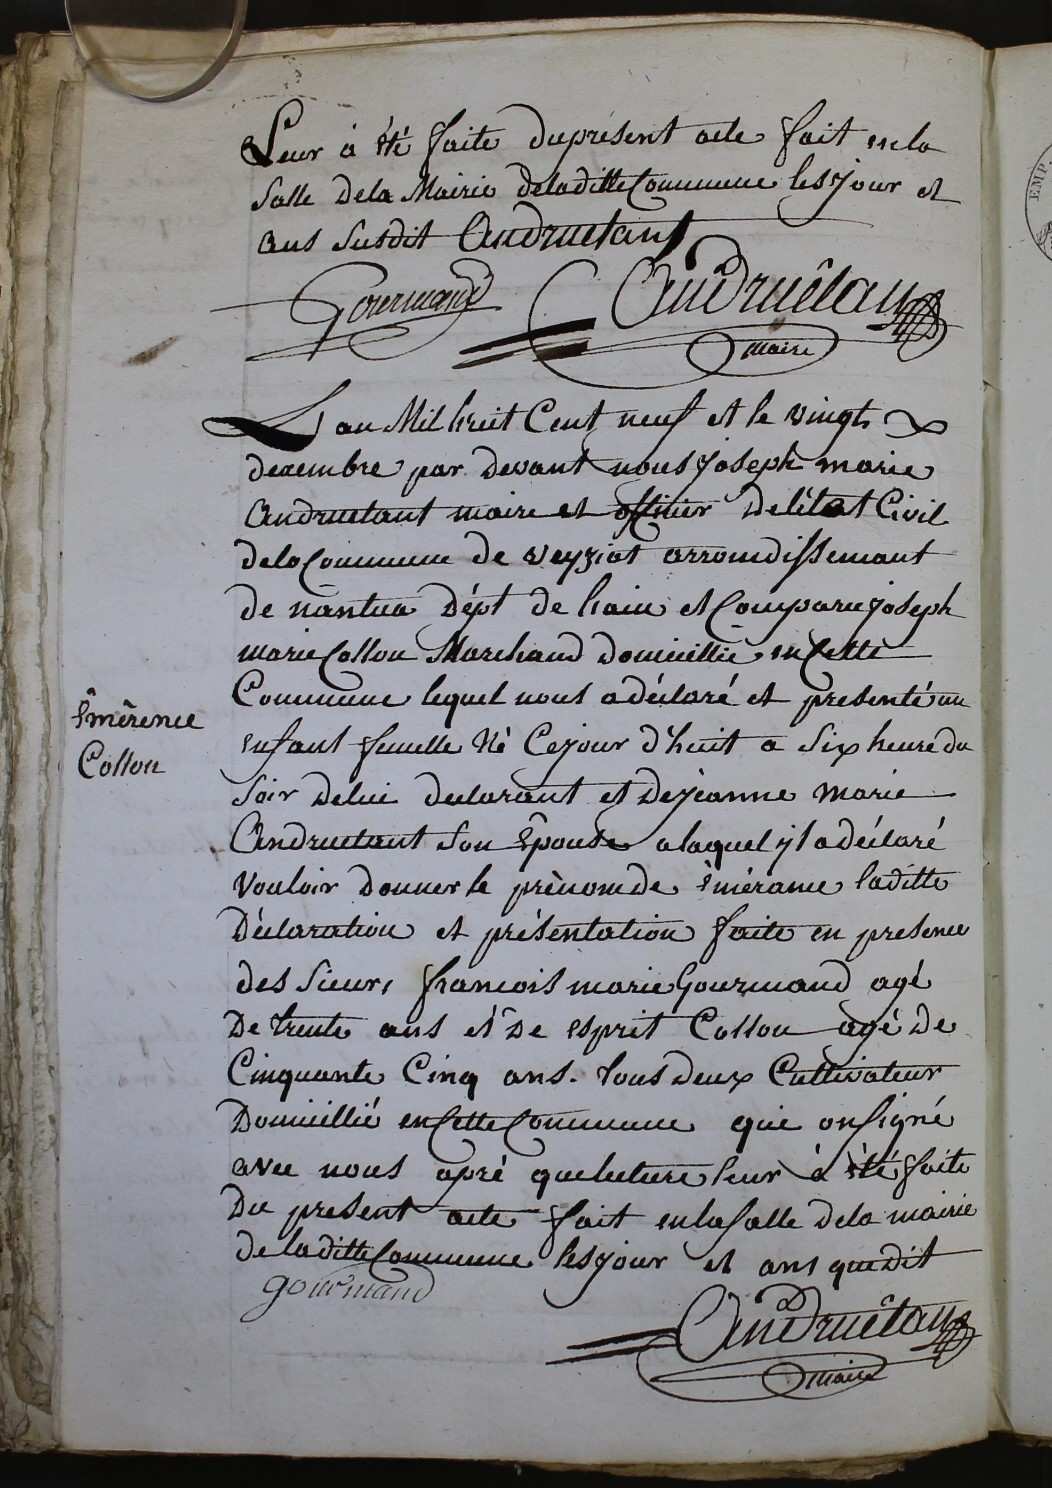 Leur à été faite du présent acte fait en la
Salle De la Mairie de laditte Commune les jour et
ans Susdit Andruetant
Gourmand Andruétan
maire
L'an Mil huit Cent neuf et le vingt
decembre par devant nous joseph marie
Andruetant maire et officier De l'état Civil
de la Commune de veyziat arrondissemant
de nantua Dépt de l'ain et Comparu joseph
marie Collou Marchand Domicillié en Cette
Commune lequel nous a déclaré et presenté un
enfant femelle Né Ce jour d'huit a Six heure du
Soir De lui declarant et De jeanne Marie
Andruetant Son Epouse a laquel yl a déclaré
Vouloir Donner le prènom de èmérance laditte
Déclaration et présentation faite en presence
des Sieurs francois marie Gourmand agé
De trente ans et De esprit Collou agé De
Cinquante Cinq ans. tous Deux Cultivateur
Domicillié en Cette Commune qui on signé
avec nous apré que lecture leur à été faite
Du present acte fait en la salle de la mairie
de laditte Commune les jour et ans que dit
gourmand
Andruétan
maire
Émèrence
Collou
EMP